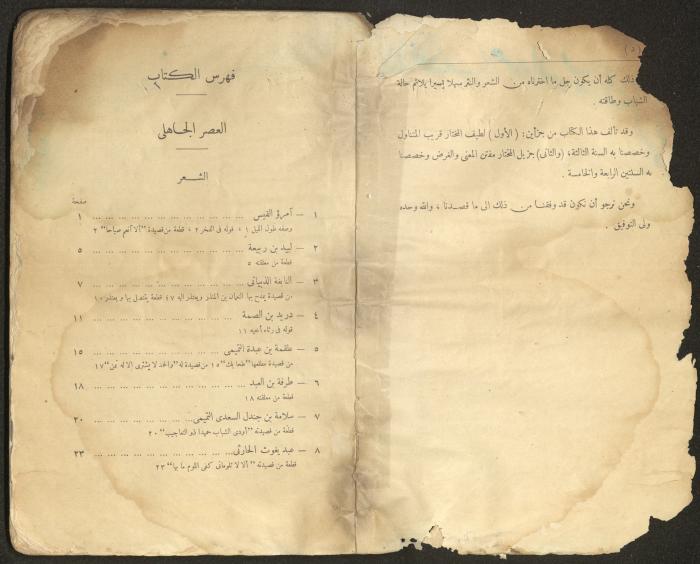 (د)
ذلك كله أن يكون جل ما اخترناه من الشعر والنثر سهلا يسيرا يلائم حالة
الشباب وطاقته .
وقد تألف هذا الكتاب من جزأين : (الأول) لطيف المختار قريب المتناول
وخصصنا به السنة الثالثة، (والثانى) جزيل المختار مفتن المعنى والغرض وخصصنا
به السنتين الرابعة والخامسة .
ونحن نرجو أن نكون قد وفقنا من ذلك الى ما قصدنا ، والله وحده
ولى التوفيق .
فهرس الكتاب
العصر الجاهلى
الشعر
صفحة
١ — آمرؤ القيس ... ١
وصفه طول الليل ١ ، قوله فى الفخر ٢ ، قطعة من قصيدة "ألا أنعم صباحا" ٢
٢ — لبيد بن ربيعة ... ٥
قطعة من معلقته ٥
٣ — النابغة الذبيانى ... ٧
من قصيدة يمدح بها النعمان بن المنذر ويعتذر اليه ٧ ؛ قطعة يتنصل بها ويعتذر ١٠
٤ — دريد بن الصمة ... ١١
قوله فى رثاء أخيه ١١
٥ — علقمة بن عبدة التميمى ... ١٥
من قصيدة مطلعها "طحا بك" ١٥ من قصيدة له "والحمد لا يشترى الا له ثمن" ١٧
٦ — طرفة بن العبد ... ١٨
قطعة من معلقته ١٨
٧ — سلامة بن جندل السعدى التميمى ... ٢٠
قطعة من قصيدته "أودى الشباب حميدا ذو التعاجيب" ٢٠
٨ — عبد يغوث الحارثى ... ٢٣
قطعة من قصيدته "ألا لا تلومانى كفى اللوم ما بيا" ٢٣